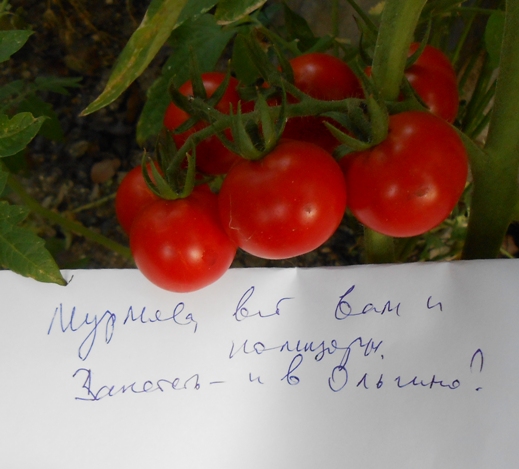 Мурмева, вот Вам и
помидоры.
Захотел - и в Ольгино!